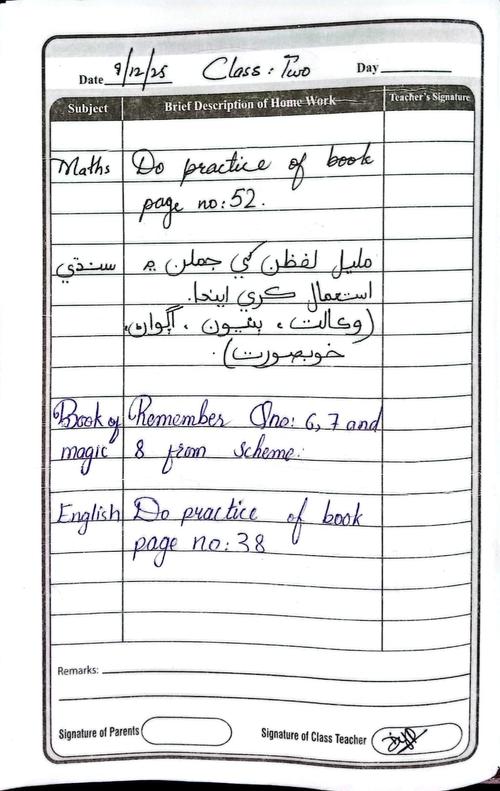 Date 9/12/25 Class: Two Day
Subject Brief Description of Home Work Teacher's Signature
Maths Do practice of book
page no: 52.
سنڌي مليل لفظن کي جملن ۾
استعمال ڪري ايندا.
(وڪالت، ٻنيون، اڳواڻ،
خوبصورت).
Book of Remember Qno: 6, 7 and
magic 8 from scheme.
English Do practice of book
page no: 38
Remarks:
Signature of Parents Signature of Class Teacher